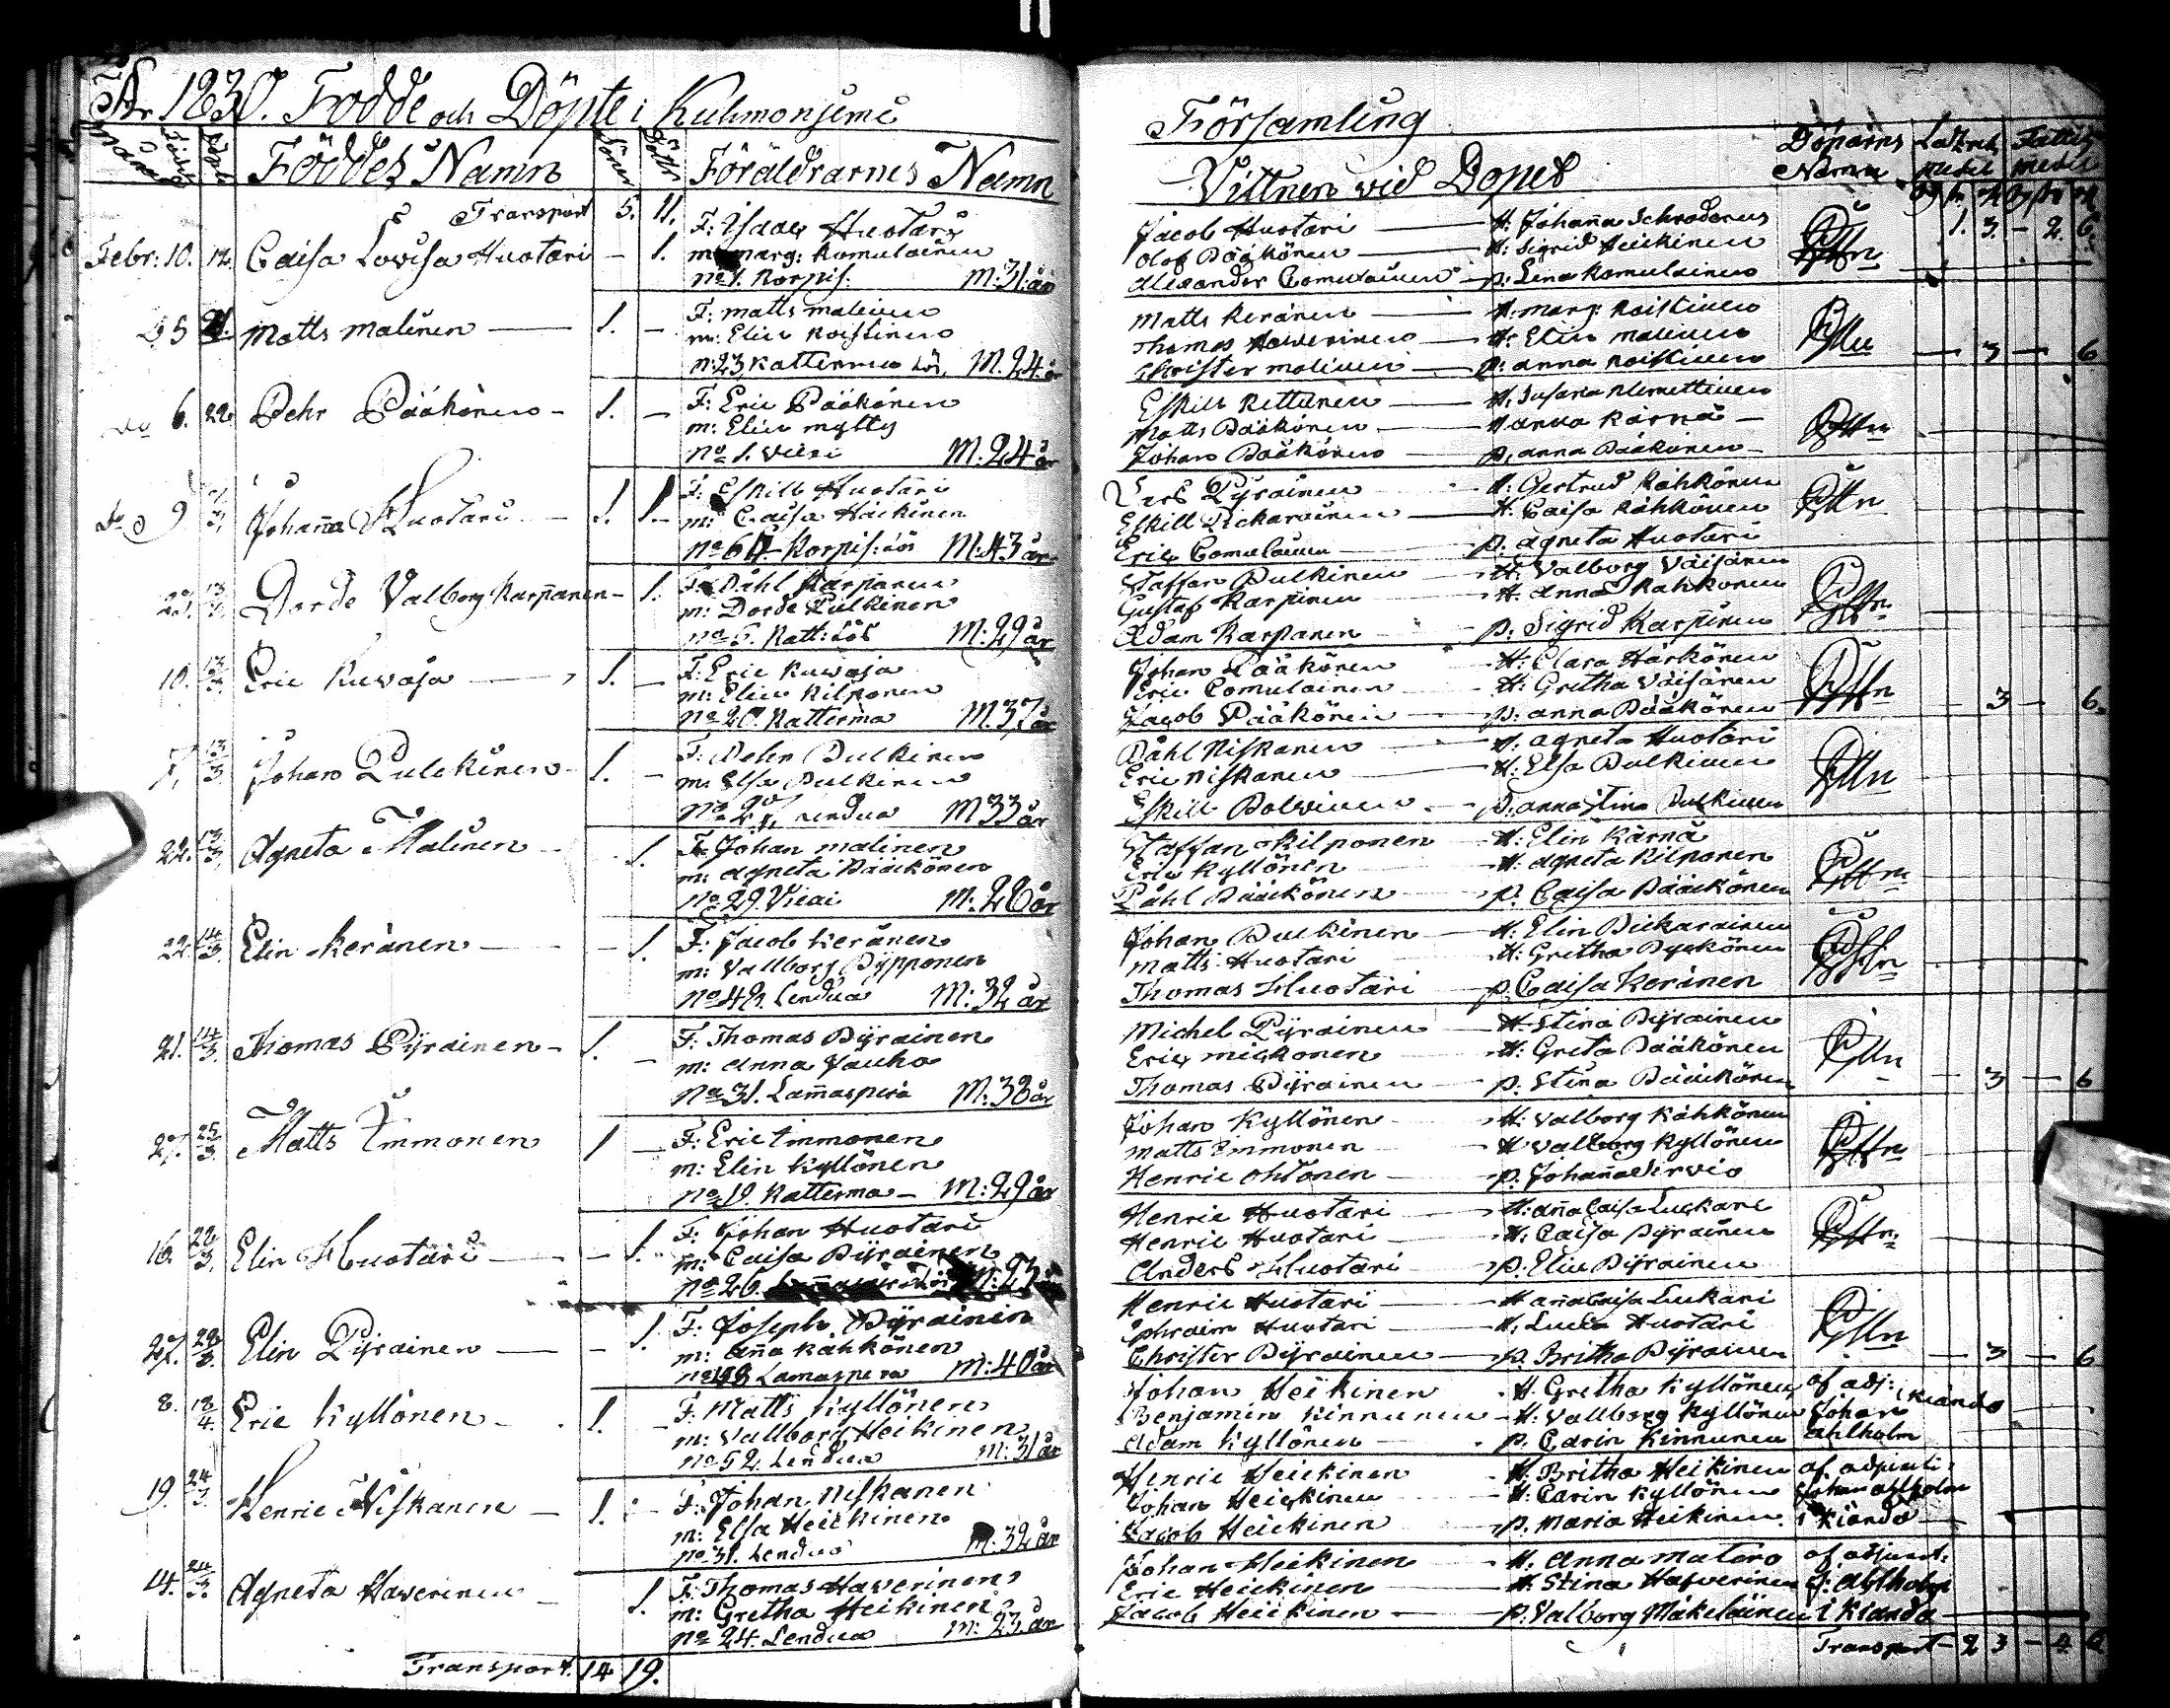 År 1830. Födde och Döpte i Kuhmoniemi
Församling
Månad Födde Döpte Föddes Namn Söner Döttr. Föräldrarnes Namn
Vittnen vid Dopet Döparns Namn Fattig medel
Transport 5. 11.
1. 3. - 2. 6.
Febr: 10. 12. Caisa Lovisa Huotari - 1.
F: Isaac Huotari
m: marg: Komulainen
No 1. Korpis. M: 31: år
Jacob Huotari - H: Johanna Schroderus
Olof Pääkönen - H: Sigrid Heickinen
Alexander Comulainen - p: Lena Komulainen
Do 5 21. Matts Malinen - 1. -
F: Matts Malinen
m: Elin Koistinen
N: 23 Katterma Lös, M. 24 år
Matts Keränen - H: marg: Koistinen
Thomas Haverinen - H: Elin Malinen
Christer Malinen - p: anna Koistinen
- 3 - 6
Do 6. 22. Pehr Pääkönen - 1. -
F: Eric Pääkönen
m: Elin Mylly
No 1. Vieri M: 24 år
Eskill Kettunen - H: Susana Klemettinen
Matts Pääkönen - H anna Kärnä -
Johan Pääkönen - p, anna Pääkönen -
Do 9 Johanna Huotari 1. 1. -
F: Eskill Huotari
m: Caisa Häikinen
No 64 - Korpis: Lös M: 43 år
Lars Pyrainen - H: Gertrud Kähkönen
Eskill Pickarainen - H: Caisa Kähkönen
Eric Comulainen - p. agneta Huotari
23. 13/3. Dorde Valborg Karpanen - 1.
F: Påhl Karpanen
m: Dorde Pulkinen
no 6. Katt: Lös M: 29 år
Staffan Pulkinen - H: Valborg Väisänen
Gustaf Karpinen - H. anna Kahkonen
Adam Karpanen - p: Sigrid Karpinen
10. 13/3. Eric Kuvaja - 1. -
F: Eric Kuvaja
m: Elin Kilponen
No 20. Katterma M. 37 år
Johan Pääkönen - H: Clara Härkönen
Eric Comulainen - H: Gretha Väisänen
Jacob Pääkönen - p: anna Pääkönen
- 3 - 6.
7. 13/3 Johan Pulckinen - 1. -
F: Pehr Pulkinen
m: Elsa Pulkinen
Lendua M 33 år
Påhl Niskanen - H. agneta Huotari
Eric Niskanen - H: Elsa Pulkinen
Eskill Polvinen - p. anna Stina Pulkinen
22. 13/3. Agneta Malinen - 1.
F: Johan Malinen
m: Agneta Pääckönen
No 29. Vieai M: 26 år
Staffan Kilponen - H: Elin Kärnä
Eric Kyllönen - H: Agneta Kilponen
Påhl Pääckönen - p. Caisa Pääckönen
22. 14/3. Elin Keränen - - 1.
F: Jacob Keränen
m: Vallborg Pypponen
No 42. Lendua M: 32 år
Johan Pulkinen - H: Elin Pickarainen
Matts Huotari - H: Gretha Pyckönen
Thomas Huotari - p. Caisa Keränen
21. 14/3. Thomas Pyrainen - 1. -
F: Thomas Pyrainen
m: Anna Jauho
No 31. Lammasperä M: 38 år
Michel Pyrainen - H. Stina Pyrainen
Eric Mickonen - H: Greta Pääkönen
Thomas Pyrainen - p. Stina Pääckönen
- 3 - 6
27. 25/3. Matts Timmonen 1 -
F: Eric Timmonen
m: Elin Kyllönen
No 19. Katterma - M: 29 år
Johan Kyllönen - H: Valborg Kähkönen
Matts Timmonen - H Vallborg Kyllönen
Henric Ohtonen - p. Johanna Sirviö
16. 28/3. Elin Huotari - - 1.
F: Johan Huotari
m: Caisa Pyrainen
No 26.
Henric Huotari - H: anna Caisa Luckari
Henric Huotari - H: Caisa Pyrainen
Anders Huotari - p. Elin Pyrainen
27. 28/3. Elin Pyrainen - - 1.
F: Joseph Pyrainen
m: Anna Kähkönen
Lamaspera M: 40 år
Henric Huotari - H anna Caisa Luckari
Ephraim Huotari - H. Lucia Huotari
Christer Pyrainen - p. Britha Pyrainen
- 3 - 6
8. 18/4. Eric Kyllönen - 1. -
F: Matts Kyllönen
m: Vallborg Heikinen
No 52. Lendua M: 31 år
Johan Heikinen - H. Gretha Kyllönen af adj: Kianda
Benjamin Kinnunen - H: Vallborg Kyllönen Johan
Adam Kyllönen - p. Carin Kinnunen Ahlholm
19. 24/3. Henric Niskanen - 1. -
F: Johan Niskanen
m: Elsa Heickinen
No 31. Lendua M: 32 år
Henric Heickinen - H. Britha Heikinen af adjunkt:
Johan Heickinen - H: Carin Kyllönen Johan Ahlholm
Jacob Heickinen - p. Maria Heikinen. i Kianda
14. 24/3. Agneta Haverinen - 1.
F: Thomas Haverinen
m: Gretha Heikinen
No 24. Lendua M: 23 år
Johan Heikinen - H. Anna Matero af adjunkt:
Eric Heickinen - H. Stina Haverinen J: Ahlholm
Jacob Heickinen - p. Valborg Mäkeläinen i Kianda
Transport. 14 19.
Transport - 2 3 - 4 6